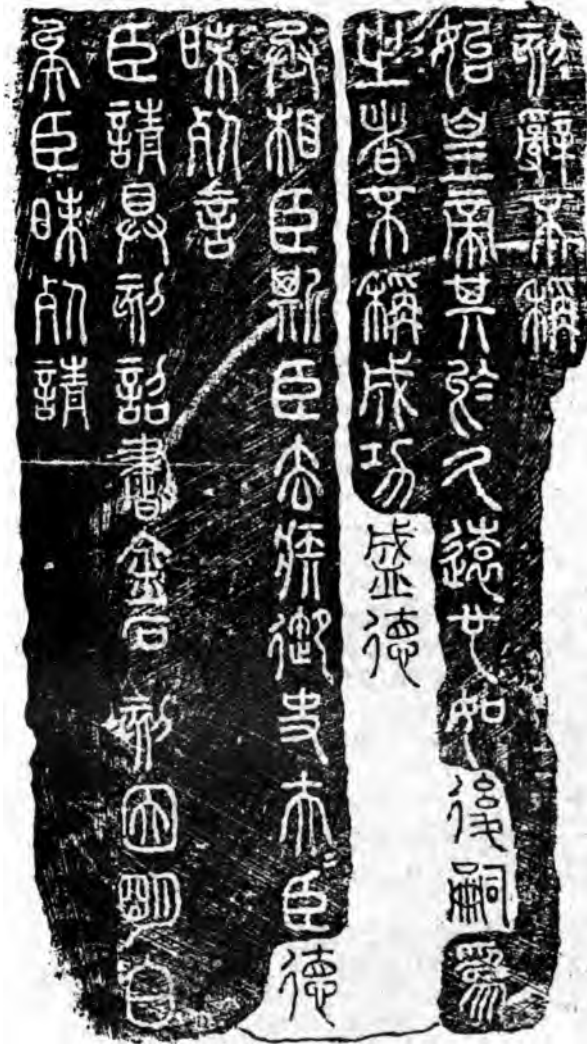 刻辭不稱
始皇帝其於久遠也如後嗣爲
之者不稱成功盛德
丞相臣斯臣去疾御史夫=臣德
昧死言
臣請具刻詔書金石刻因明白
矣臣昧死請